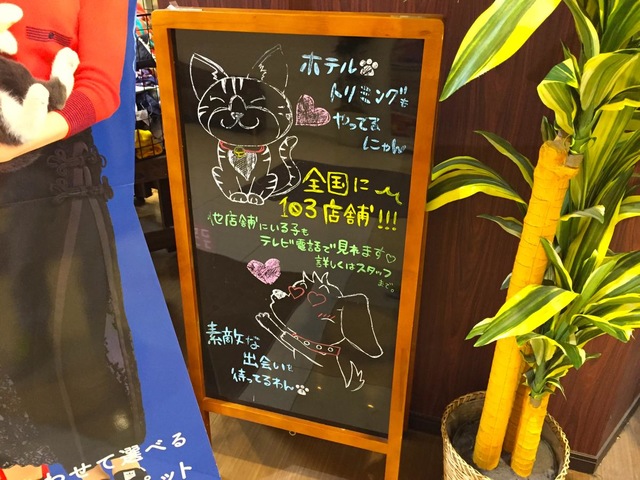 ホテル
トリミングも
やってる
にゃん
全国に
103店舗!!!
他店舗にいる子も
テレビ電話で見れます♡
詳しくはスタッフ
まで。
素敵な
出会いを
待ってるわん
わせて選べる
ペット